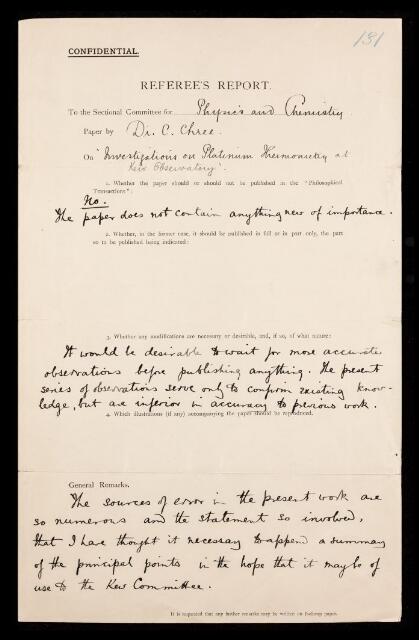 131
CONFIDENTIAL.
REFEREE'S REPORT.
To the Sectional Committee for Physics and Chemistry
Paper by Dr. C. Chree.
On "Investigations on Platinum Thermometry at
Kew Observatory".
1. Whether the paper should or should not be published in the "Philosophical
Transactions":
No.
The paper does not contain anything new of importance.
2. Whether, in the former case, it should be published in full or in part only, the part
so to be published being indicated:
3. Whether any modifications are necessary or desirable, and, if so, of what nature:
It would be desirable to wait for more accurate
observations before publishing anything. The present
series of observations serve only to confirm existing know-
ledge, but are inferior in accuracy to previous work.
4. Which illustrations (if any) accompanying the paper should be reproduced.
General Remarks.
The sources of error in the present work are
so numerous and the statement so involved,
that I have thought it necessary to append a summary
of the principal points in the hope that it may be of
use to the Kew Committee.
It is requested that any further remarks may be written on foolscap paper.